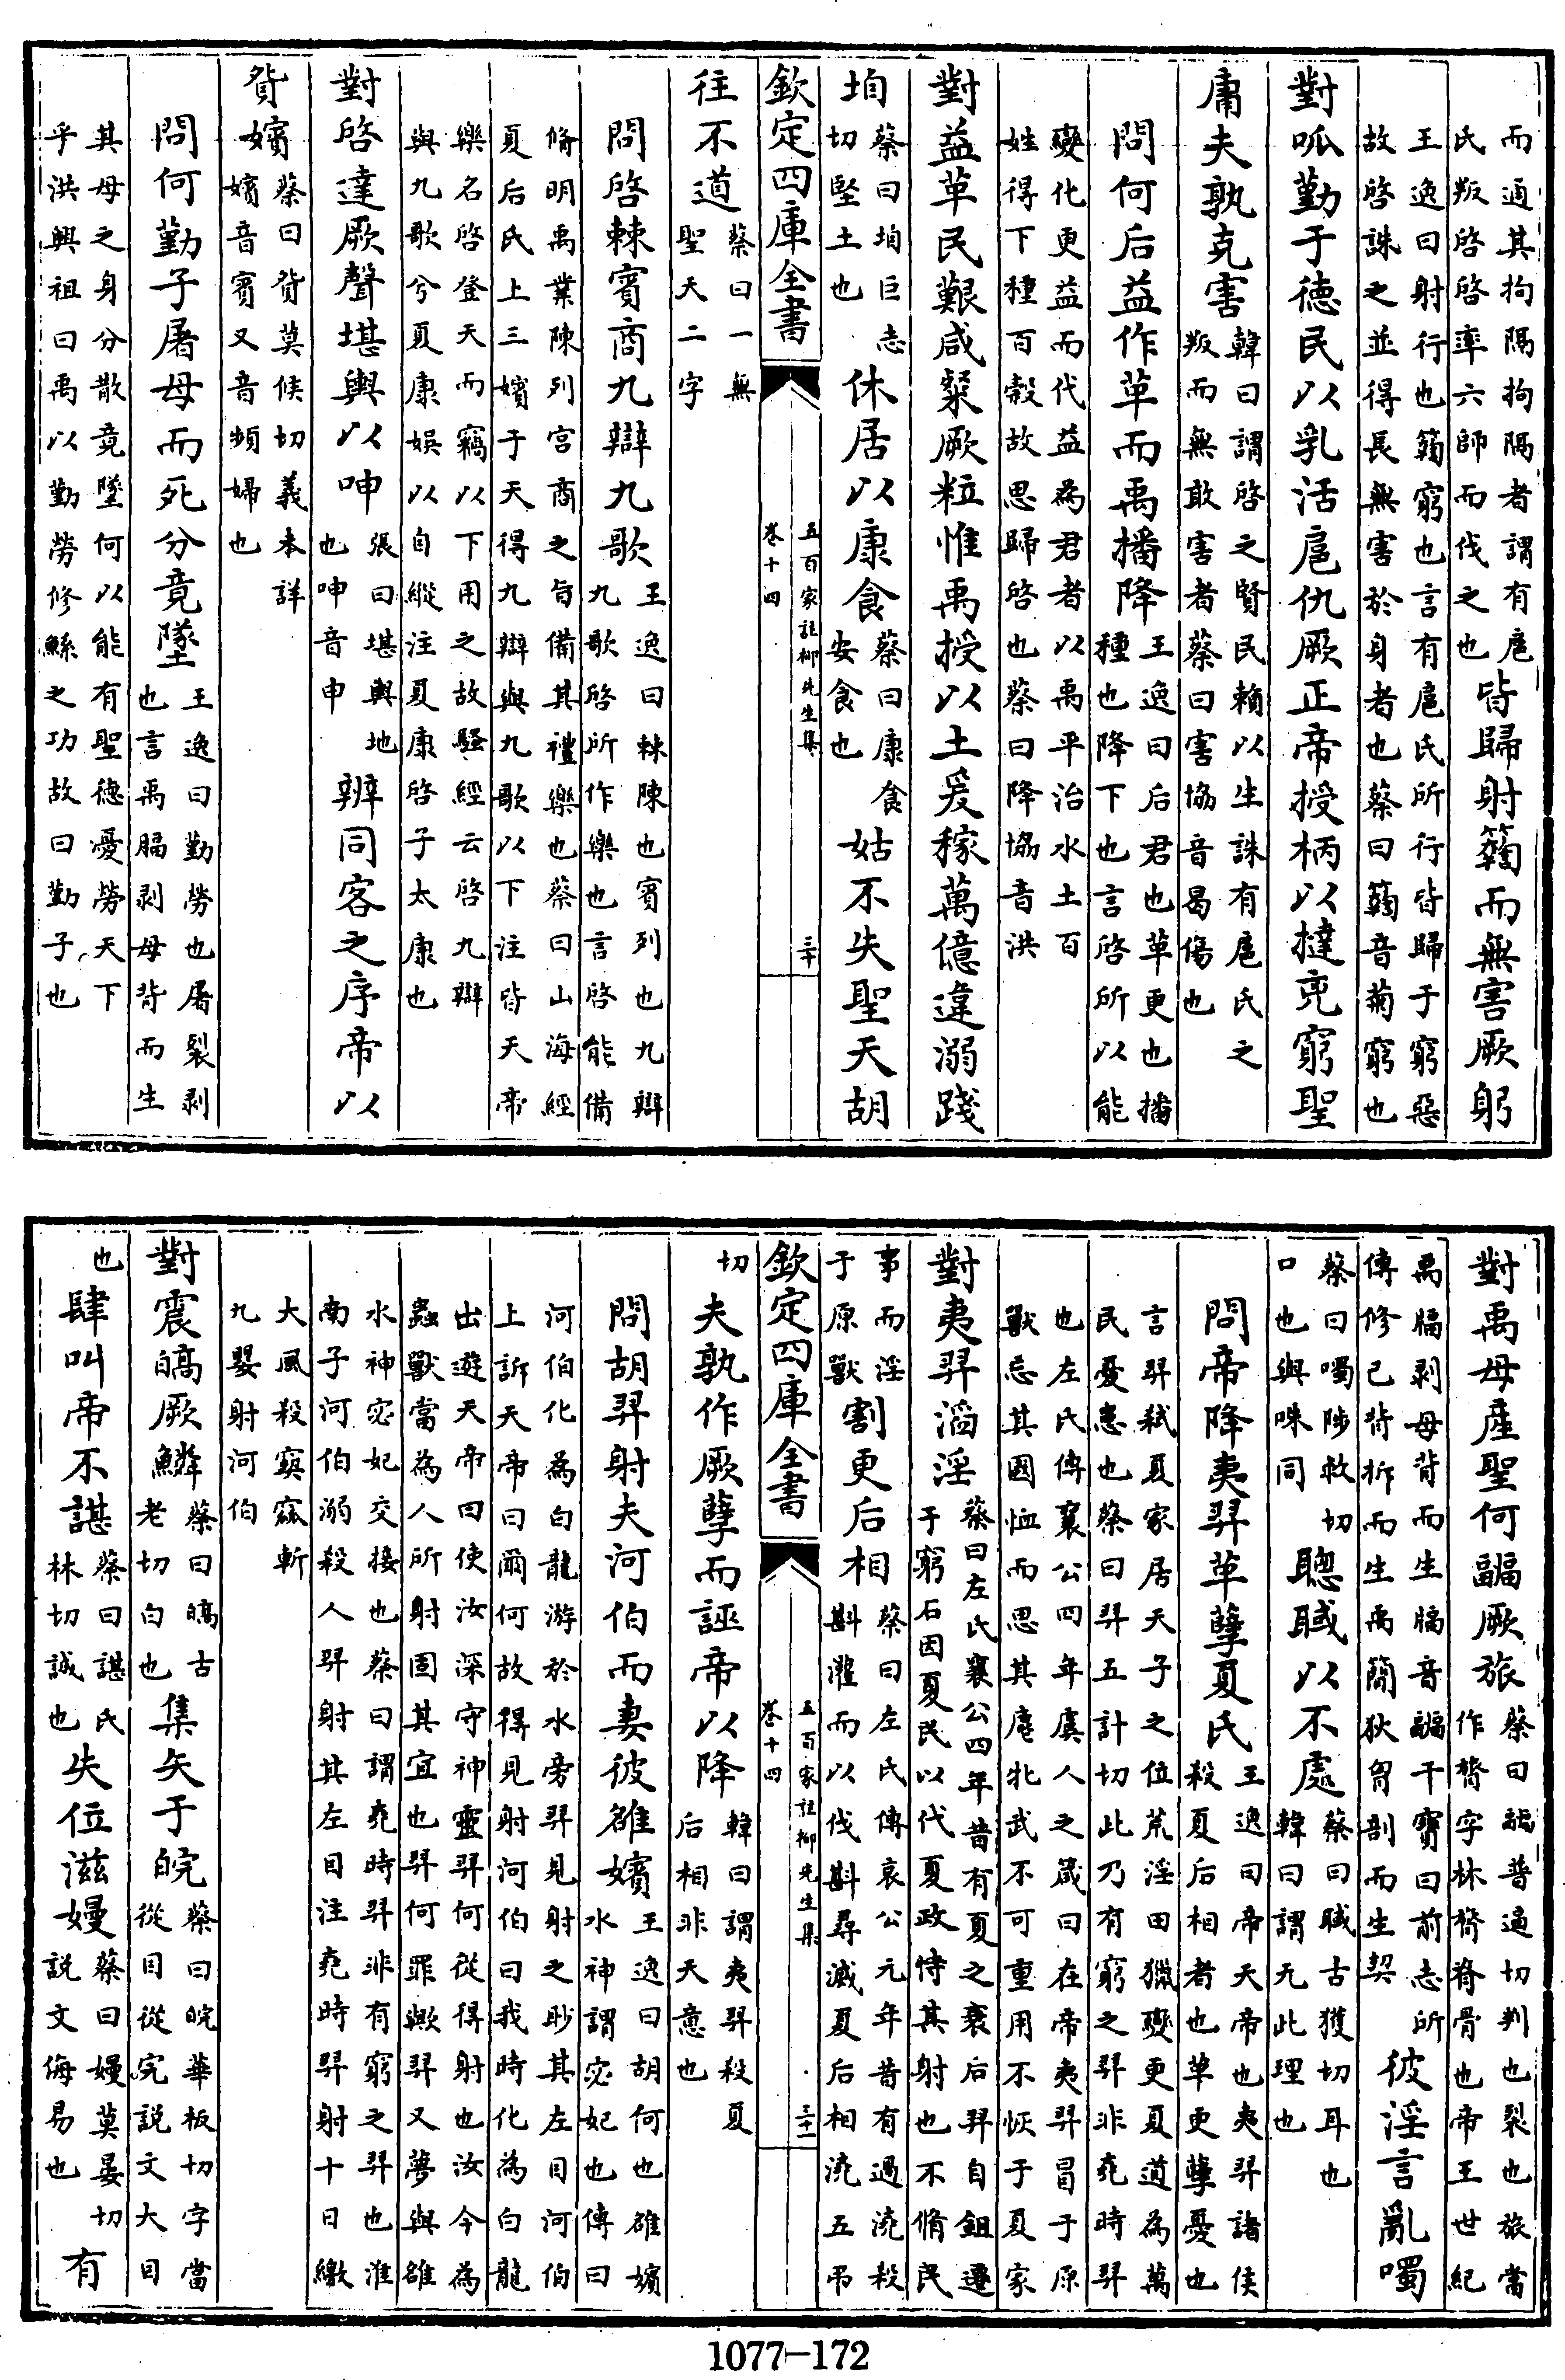 而通其拘隔拘隔者謂有扈
氏叛啓啓率六師而伐之也
皆歸射䉯而無害厥躬
王逸曰射行也䉯窮也言有扈氏所行皆歸于窮惡
故啓誅之並得長無害於身者也蔡曰䉯音菊窮也
對呱勤于德民以乳活扈仇厥正帝授柄以撻兇窮聖
庸夫孰克害
韓曰謂啓之賢民賴以生誅有扈氏之
叛而無敢害者蔡曰害協音曷傷也
問何后益作革而禹播降
王逸曰后君也革更也播
種也降下也言啓所以能
變化更益而代益為君者以禹平治水土百
姓得下種百穀故思歸啓也蔡曰降協音洪
對益革民艱咸粲厥粒惟禹授以土爰稼萬億違溺踐
垍
蔡曰垍巨志
切堅土也
休居以康食
蔡曰康食
安食也
姑不失聖天胡
欽定四庫全書
五百家註柳先生集
卷十四
三十
往不道
蔡曰一無
聖天二字
問啓棘賓商九辯九歌
王逸曰棘陳也賓列也九辯
九歌啓所作樂也言啓能備
脩明禹業陳列宮商之音備其禮樂也蔡曰山海經
夏后氏上三嬪于天得九辯與九歌以下注皆天帝
樂名啓登天而竊以下用之故騷經云啓九辯
與九歌兮夏康娛以自縱注夏康啓子太康也
對啓達厥聲堪輿以呻
張曰堪輿地
也呻音申
辨同容之序帝以
貿嬪
蔡曰貿莫候切義未詳
嬪音賓又音頻婦也
問何勤子屠母而死分竟墜
王逸曰勤勞也屠裂剥
也言禹膈剥母背而生
其母之身分散竟墜何以能有聖德憂勞天下
乎洪興祖曰禹以勤勞修鯀之功故曰勤子也
對禹母産聖何疈厥旅
蔡曰疈普逼切判也裂也旅當
作膂字林膂脊骨也帝王世紀
禹膈剥母背而生膈音疈干寶曰前志所
傳修己背拆而生禹簡狄胷剖而生契
彼淫言亂噣
蔡曰噣陟救切
口也與咮同
聰聝以不處
蔡曰聝古獲切耳也
韓曰謂无此理也
問帝降夷羿革孽夏氏
王逸曰帝天帝也夷羿諸侯
殺夏后相者也革更孽憂也
言羿弒夏家居天子之位荒淫田獵變更夏道為萬
民憂患也蔡曰羿五計切此乃有窮之羿非堯時羿
也左氏傳襄公四年虞人之箴曰在帝夷羿冒于原
獸忘其國恤而思其麀牝武不可重用不恢于夏家
對夷羿滔淫
蔡曰左氏襄公四年昔有夏之衰后羿自鉏遷
于窮石因夏民以代夏政恃其射也不脩民
事而淫
于原獸
割更后相
蔡曰左氏傳哀公元年昔有過澆殺
斟灌而以伐斟尋滅夏后相澆五弔
欽定四庫全書
五百家註柳先生集
卷十四
三十一
切
夫孰作厥孽而誣帝以降
韓曰謂夷羿殺夏
后相非天意也
問胡羿射夫河伯而妻彼雒嬪
王逸曰胡何也雒嬪
水神謂宓妃也傳曰
河伯化為白龍游於水旁羿見射之眇其左目河伯
上訴天帝曰爾何故得見射河伯曰我時化為白龍
出遊天帝曰使汝深守神靈羿何從得射也汝今為
蟲獸當為人所射固其宜也羿何罪歟羿又夢與雒
水神宓妃交接也蔡曰謂堯時羿非有窮之羿也淮
南子河伯溺殺人羿射其左目注堯時羿射十日繳
大風殺窫窳斬
九嬰射河伯
對震皜厥鱗
蔡曰皜古
老切白也
集矢于皖
蔡曰皖華板切字當
從目從完說文大目
也
肆叫帝不諶
蔡曰諶氏
林切誠也
失位滋嫚
蔡曰嫚莫晏切
說文侮易也
有
1077-172